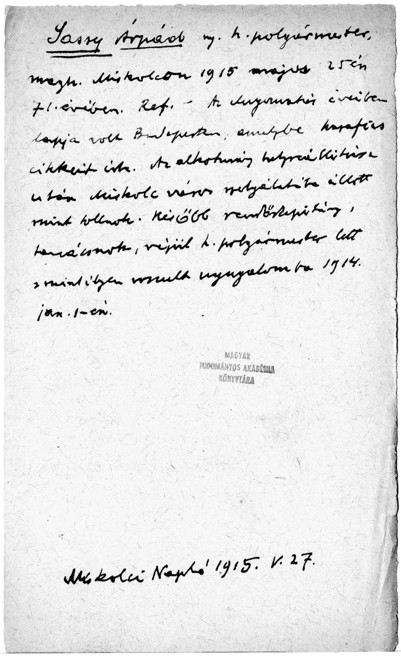 Sassy Árpád ny. h. polgármester,
megh. Miskolcon 1915 május 25én
71. évében. Ref. – Az elnyomatás éveiben
lapja volt Budapesten, amelybe hazafias
cikkeit írta. Az alkotmány helyreállítása
után Miskolc város szolgálatába állott
mint tollnok. Később rendőrkapitány,
tanácsnok, végül h. polgármester lett
s mint ilyen vonult nyugalomba 1914.
jan. 1-én.
MAGYAR
TUDOMÁNYOS AKADÉMIA
KÖNYVTÁRA
Miskolci Napló 1915. V. 27.